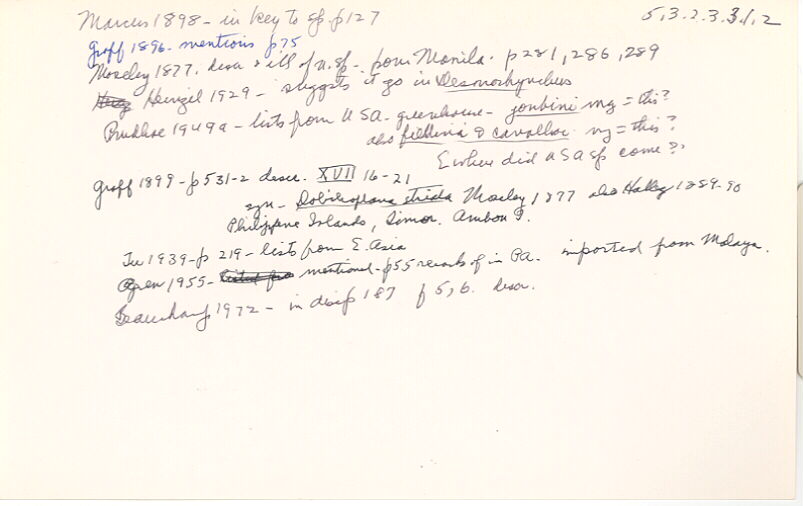 5,3.2.3.3.1.2
Marcus 1898 - in key to sp. p127
Graff 1896. mentions p.75
Moseley 1877. descr & ill of n. sp. - from Manila. p281, 286, 289
Heinzel 1929 - suggests it go in Desmorhynchus
Prudhoe 1949a - lists from USA - greenhouse - joubini my = this?
also feildeni & cavalloi my = this?
E where did USA sp come?
Graff 1899 - p531-2 descr. XVII 16-21
syn - Dolichoplana striata Moseley 1877 also Hallez 1889-90
Philippine Islands, Timor. Ambon?.
Tu 1939 - p 219 - lists from E. Asia
1955 - mentioned - p55 records of in Pa. imported from Malaya.
Beauchamp 1972 - in 187 f 5, 6. descr.